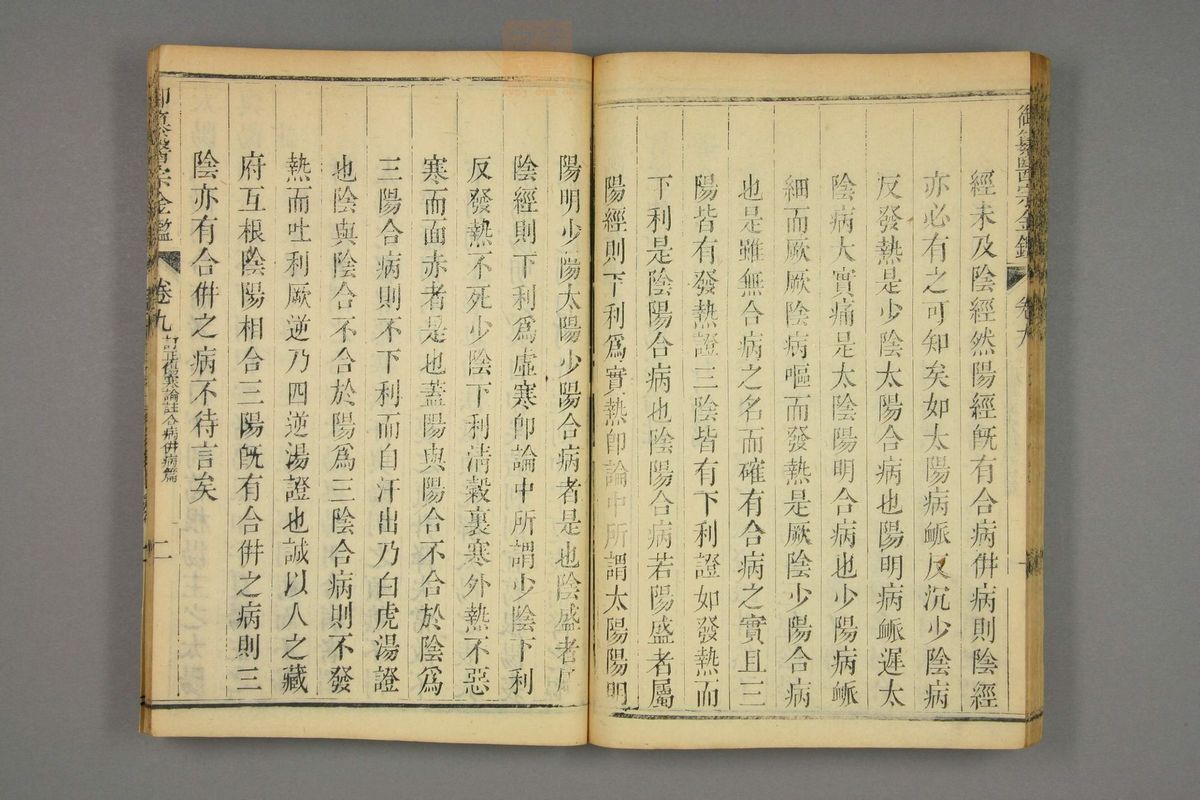 御纂醫宗金鑑 卷九
經未及陰經然陽經旣有合病倂病則陰經
亦必有之可知矣如太陽病脈反沉少陰病
反發熱是少陰太陽合病也陽明病脈遲太
陰病大實痛是太陰陽明合病也少陽病脈
細而厥厥陰病嘔而發熱是厥陰少陽合病
也是雖無合病之名而確有合病之實且三
陽皆有發熱證三陰皆有下利證如發熱而
下利是陰陽合病也陰陽合病若陽盛者屬
陽經則下利爲實熱卽論中所謂太陽陽明
陽明少陽太陽少陽合病者是也陰盛者屬
陰經則下利爲虛寒卽論中所謂少陰下利
反發熱不死少陰下利淸穀裏寒外熱不惡
寒而面赤者是也蓋陽與陽合不合於陰爲
三陽合病則不下利而自汗出乃白虎湯證
也陰與陰合不合於陽爲三陰合病則不發
熱而吐利厥逆乃四逆湯證也誠以人之藏
府互根陰陽相合三陽旣有合倂之病則三
陰亦有合倂之病不待言矣
御纂醫宗金鑑 卷九 訂正傷寒論註合病倂病篇 二